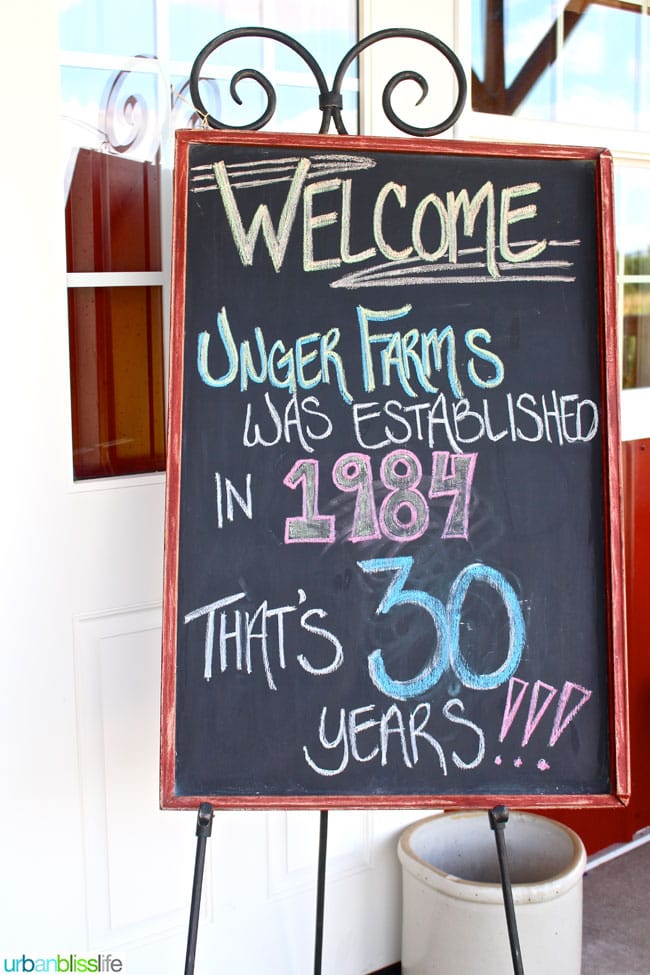 WELCOME
UNGER FARMS
WAS ESTABLISHED
IN 1984
THAT'S 30
YEARS!!!
urbanblisslife